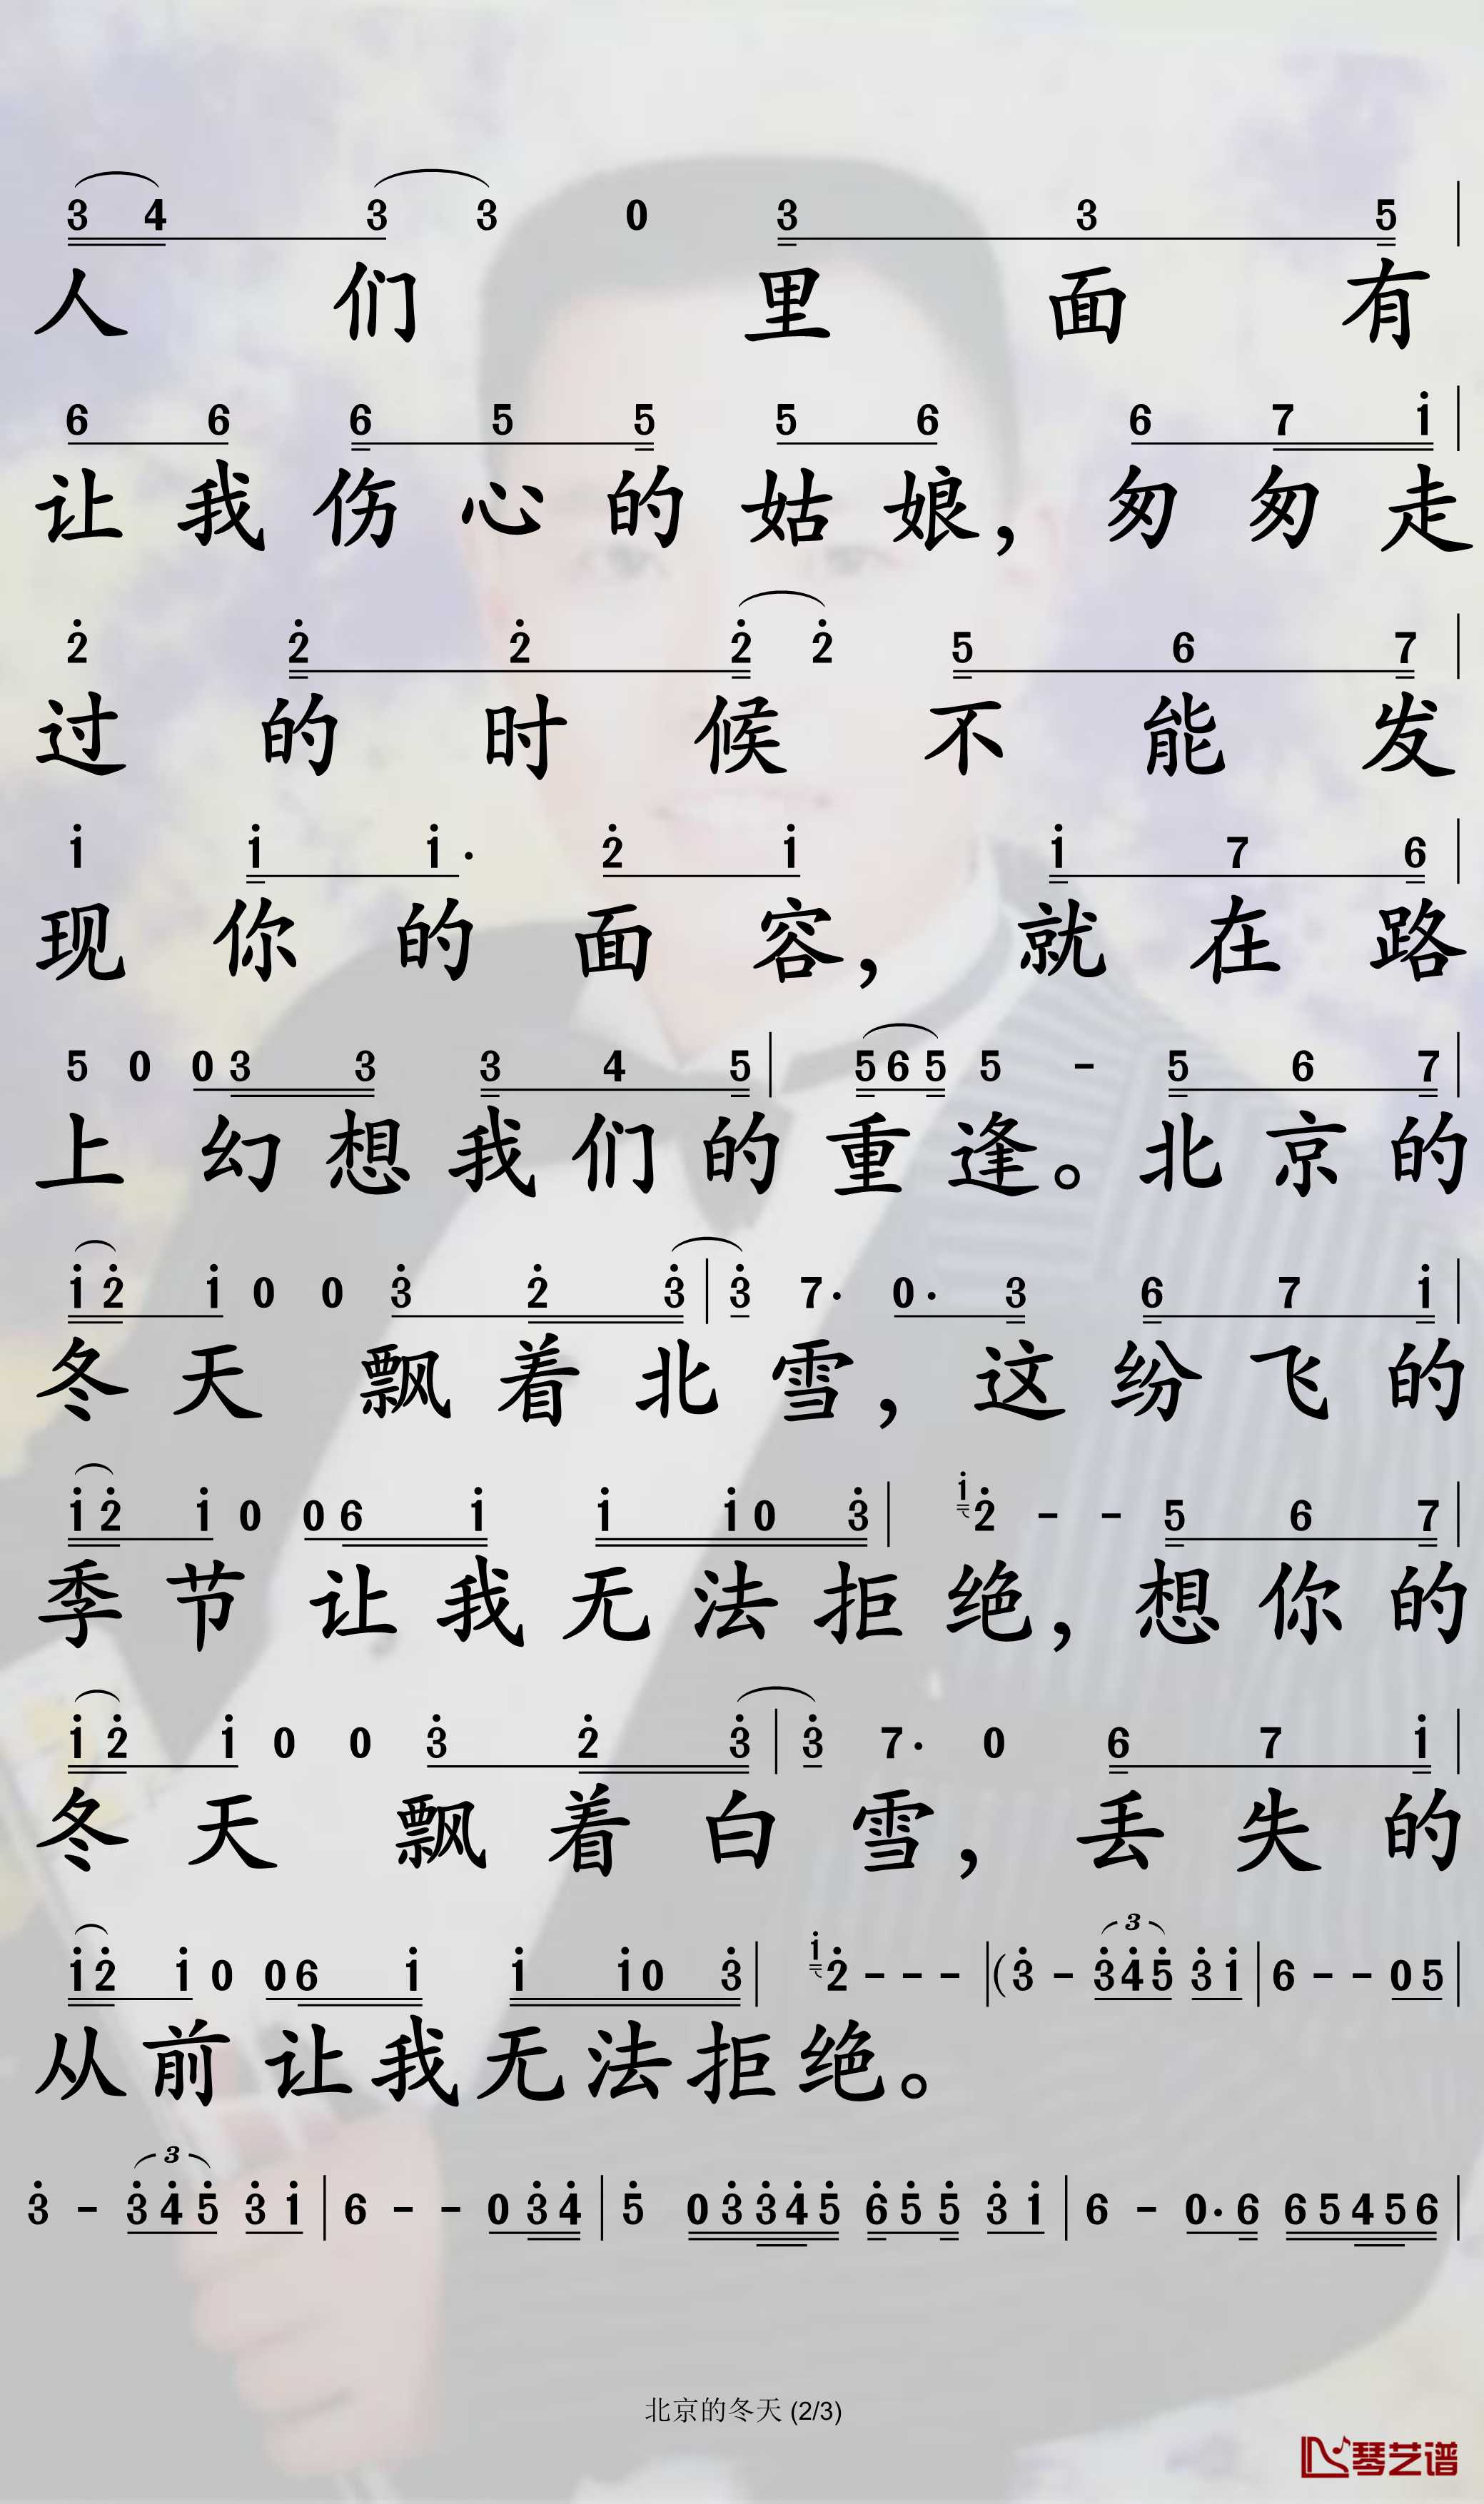 3 4 3 3 0 3 3 5 |
人们 里面有
6 6 6 5 5 5 6 6 7 i |
让我伤心的姑娘，匆匆走
2̇ 2̇ 2̇ 2̇ 2̇ 5 6 7 |
过的时候不能发
i i i· 2̇ i i 7 6 |
现你的面容，就在路
5 0 0 3 3 3 4 5 | 5 6 5 5 - 5 6 7 |
上幻想我们的重逢。北京的
i 2̇ i 0 0 3̇ 2̇ 3̇ | 3̇ 7· 0· 3 6 7 i |
冬天 飘着北雪，这纷飞的
i 2̇ i 0 0 6 i i i 0 3̇ | i 2̇ - - 5 6 7 |
季节让我无法拒绝，想你的
i 2̇ i 0 0 3̇ 2̇ 3̇ | 3̇ 7· 0 6 7 i |
冬天 飘着白雪，丢失的
i 2̇ i 0 0 6 i i i 0 3̇ | i 2̇ - - - | (3̇ - 3 3̇ 4̇ 5̇ 3̇ i | 6 - - 0 5 |
从前让我无法拒绝。
3̇ - 3 3̇ 4̇ 5̇ 3̇ i | 6 - - 0 3̇ 4̇ | 5̇ 0 3̇ 3̇ 4̇ 5̇ 6̇ 5̇ 5̇ 3̇ i | 6 - 0· 6 6 5 4 5 6 |
北京的冬天 (2/3)
琴艺谱